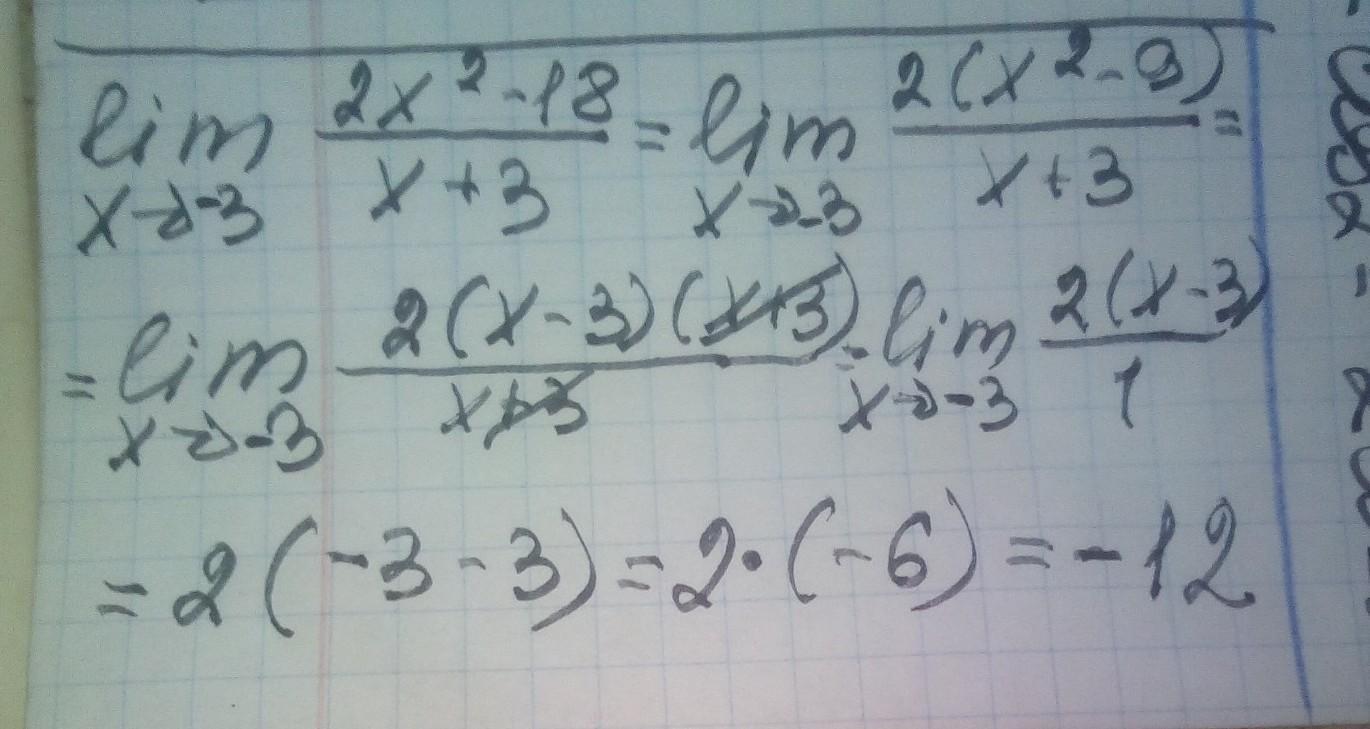 lim x→-3 (2x² - 18)/(x + 3) = lim x→-3 2(x² - 9)/(x + 3) =
= lim x→-3 2(x - 3)(x + 3)/(x + 3) = lim x→-3 2(x - 3)/1
= 2(-3 - 3) = 2·(-6) = -12